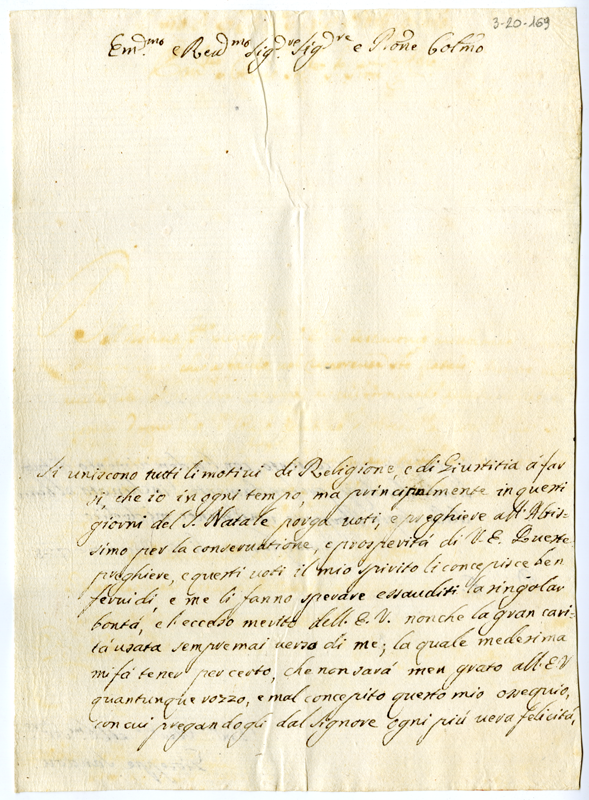 3-20-169
Em.mo e Reu.mo Sig.re Sig.re e P.rone Colmo
Si uniscono tutti li motiui di Religione, e di Giustitia á far
si, che io in ogni tempo, ma principalmente in questi
giorni del S. Natale porga uoti, e preghiere all'Altis=
simo per la conseruatione, e prosperitá di V.E. Queste
preghiere, e questi uoti il mio spirito li concepisce ben
feruidi, e me li fanno sperare essauditi la singolar
bontá, e l'eccelso merito dell'E.V. nonche la gran cari=
tá usata sempremai uerso di me; la quale medesima
mi fá tener per certo, che non sará men grato all'E.V
quantunque rozzo, e mal concepito questo mio ossequio,
con cui pregandogli dal Signore ogni piú uera felicitá,